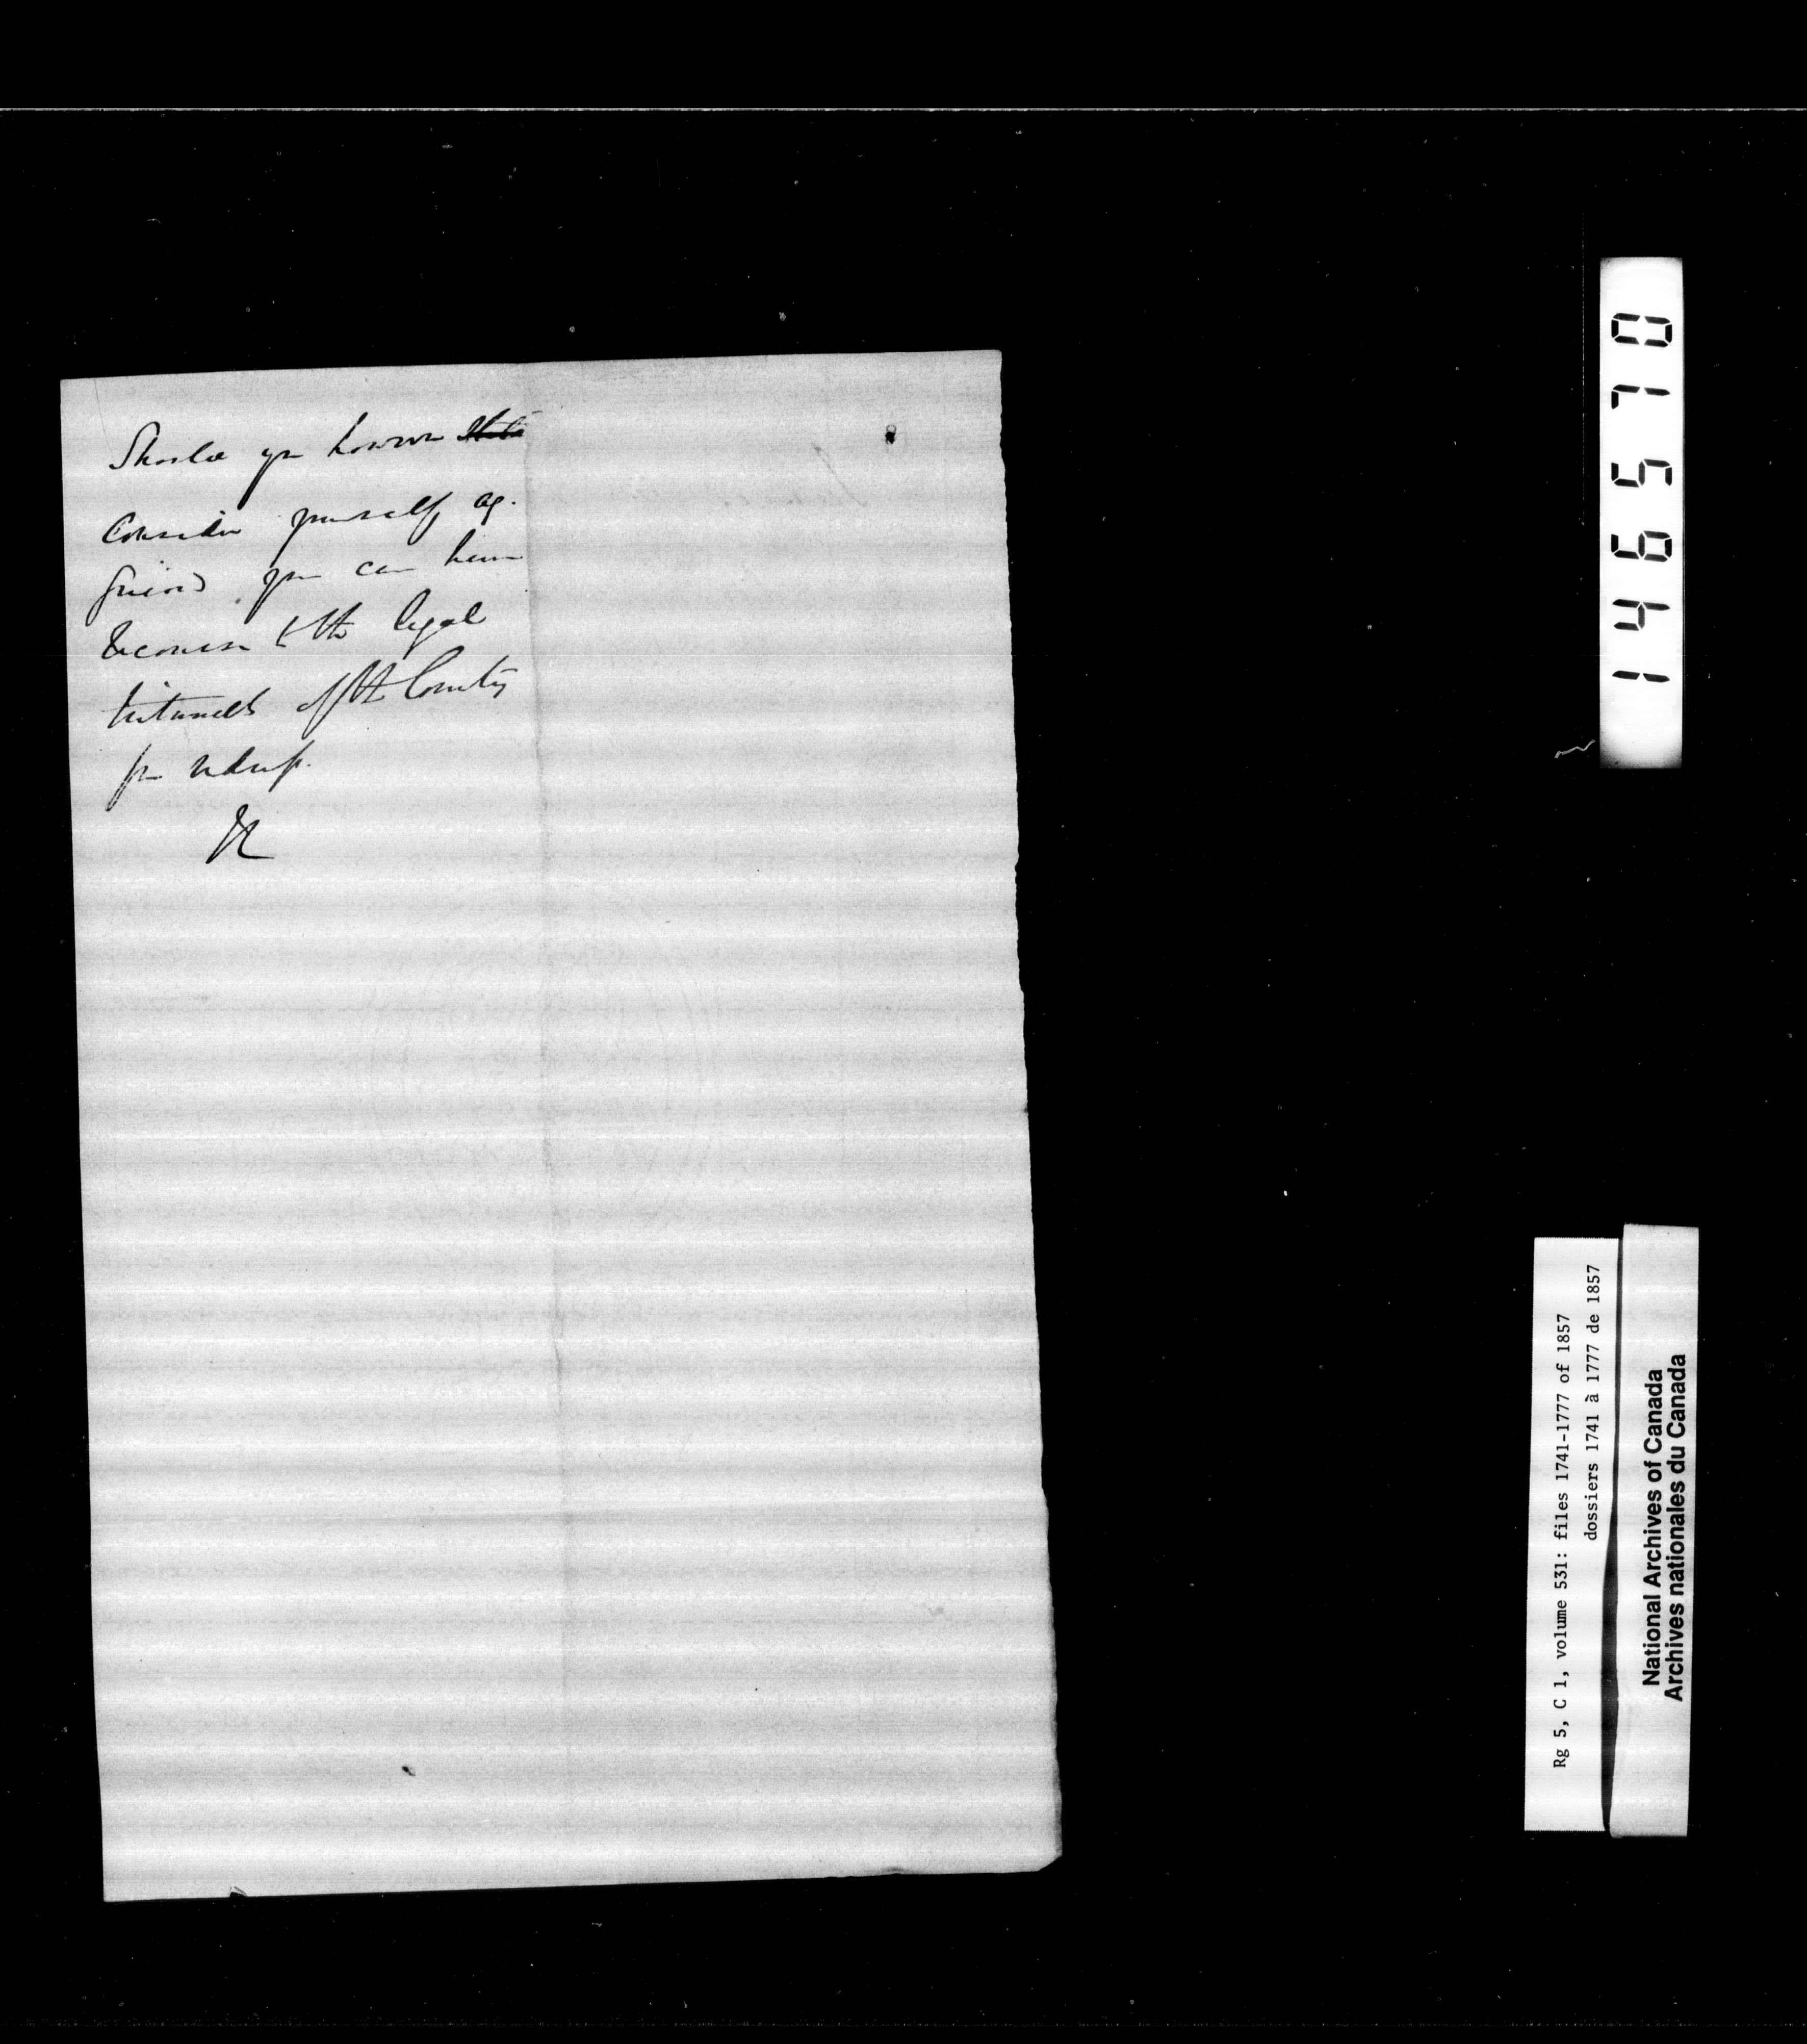 Should you however
Consider yourself ag-
grieved you can have
recourse to the legal
tribunals of the Country
for redress.
146570
Rg 5, C 1, volume 531: files 1741-1777 of 1857
dossiers 1741 à 1777 de 1857
National Archives of Canada
Archives nationales du Canada